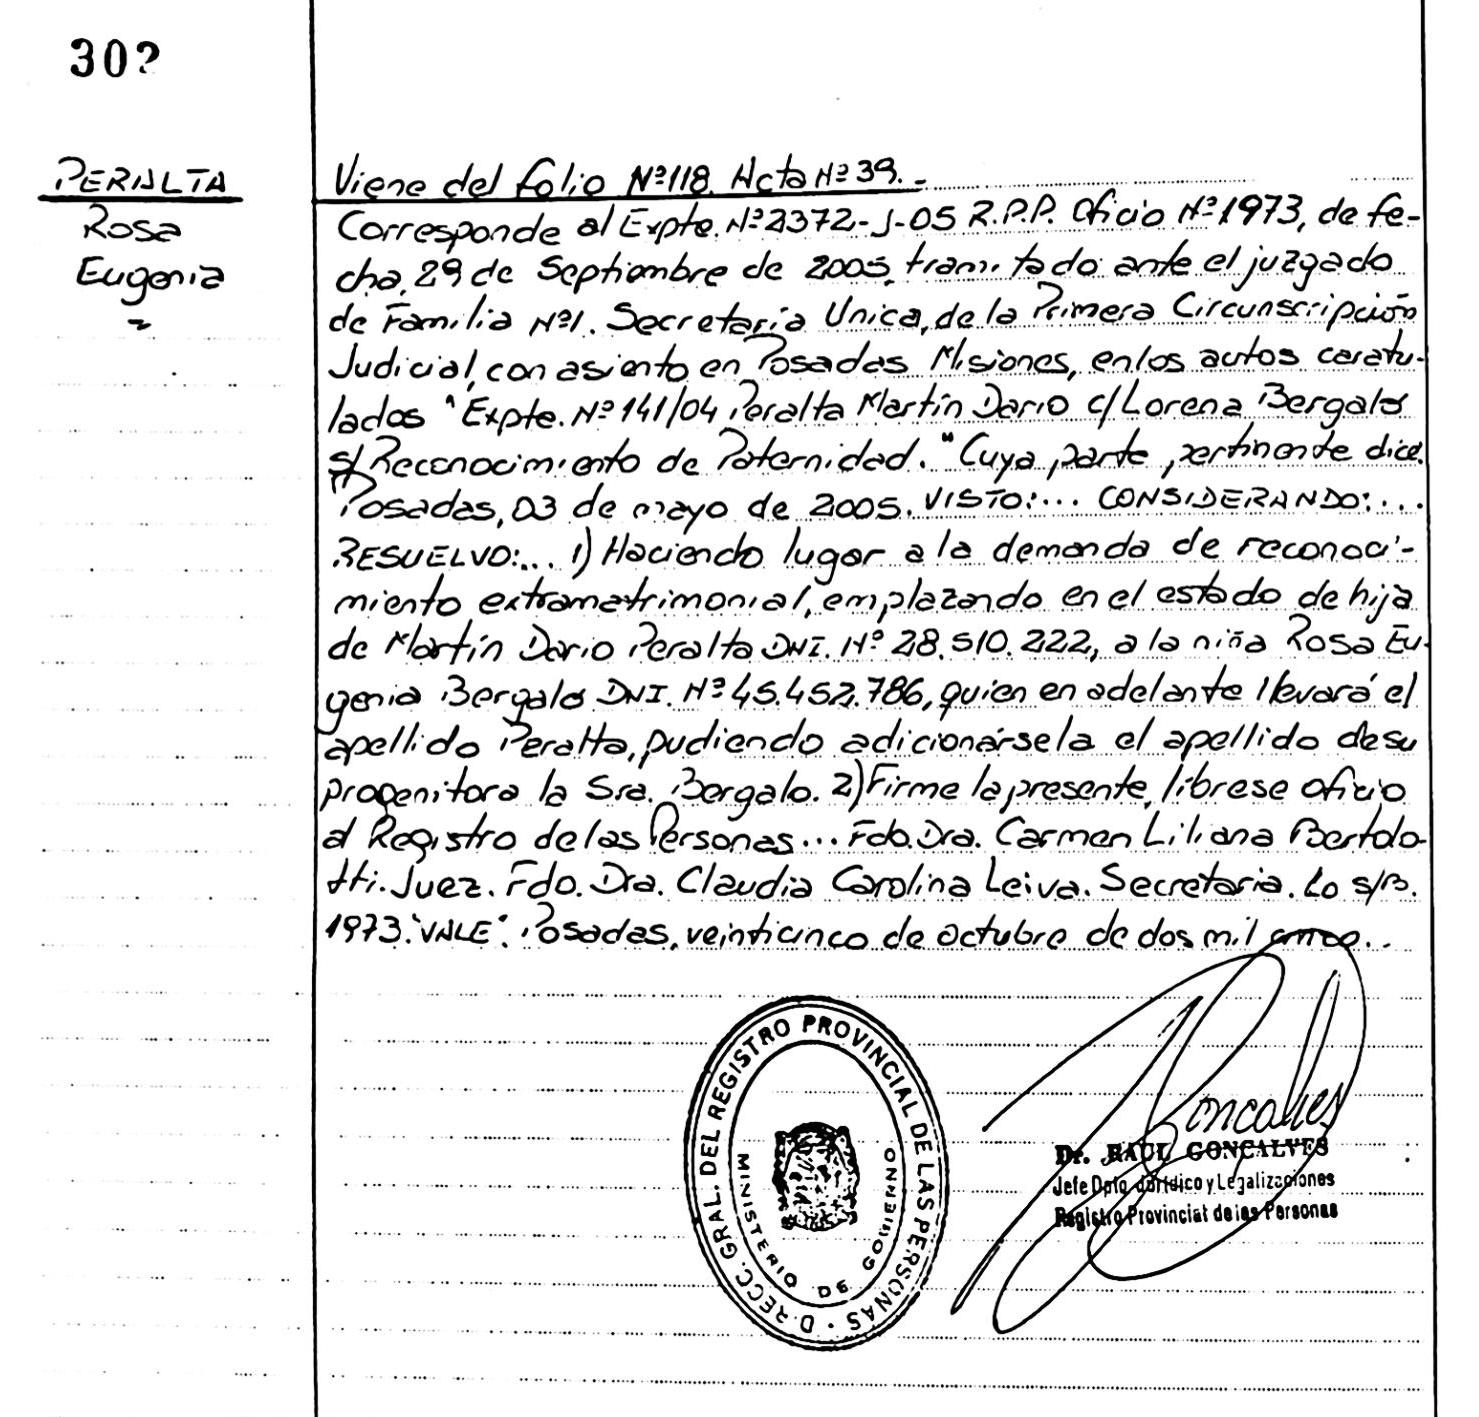 302
PERALTA
Rosa
Eugenia
Viene del folio Nº118. Acta Nº39.-
Corresponde al Expte. Nº2372-J-05 R.P.P. Oficio Nº1973, de fe-
cha, 29 de Septiembre de 2005, tramitado ante el juzgado
de Familia Nº1. Secretaría Unica, de la Primera Circunscripción
Judicial, con asiento en Posadas Misiones, en los autos caratu-
lados "Expte. Nº141/04 Peralta Martín Dario c/Lorena Bergalo
s/Reconocimiento de Paternidad." Cuya parte pertinente dice.
Posadas, 03 de mayo de 2005. VISTO:... CONSIDERANDO:...
RESUELVO:... 1) Haciendo lugar a la demanda de reconoci-
miento extramatrimonial, emplazando en el estado de hija
de Martín Dario Peralta DNI. Nº 28.510.222, a la niña Rosa Eu-
genia Bergalo DNI. Nº45.452.786, quien en adelante llevará el
apellido Peralta, pudiendo adicionársela el apellido de su
progenitora la Sra. Bergalo. 2) Firme la presente, líbrese oficio
al Registro de las Personas... Fdo. Dra. Carmen Liliana Bertolo-
tti. Juez. Fdo. Dra. Claudia Carolina Leiva. Secretaria. Lo s/B.
1973. "VALE". Posadas, veinticinco de octubre de dos mil cinco..
D. RECC. GRAL. DEL REGISTRO PROVINCIAL DE LAS PERSONAS
MINISTERIO DE GOBIERNO
Goncalves
Dr. RAUL GONCALVES
Jefe Dpto. Jurídico y Legalizaciones
Registro Provincial de las Personas